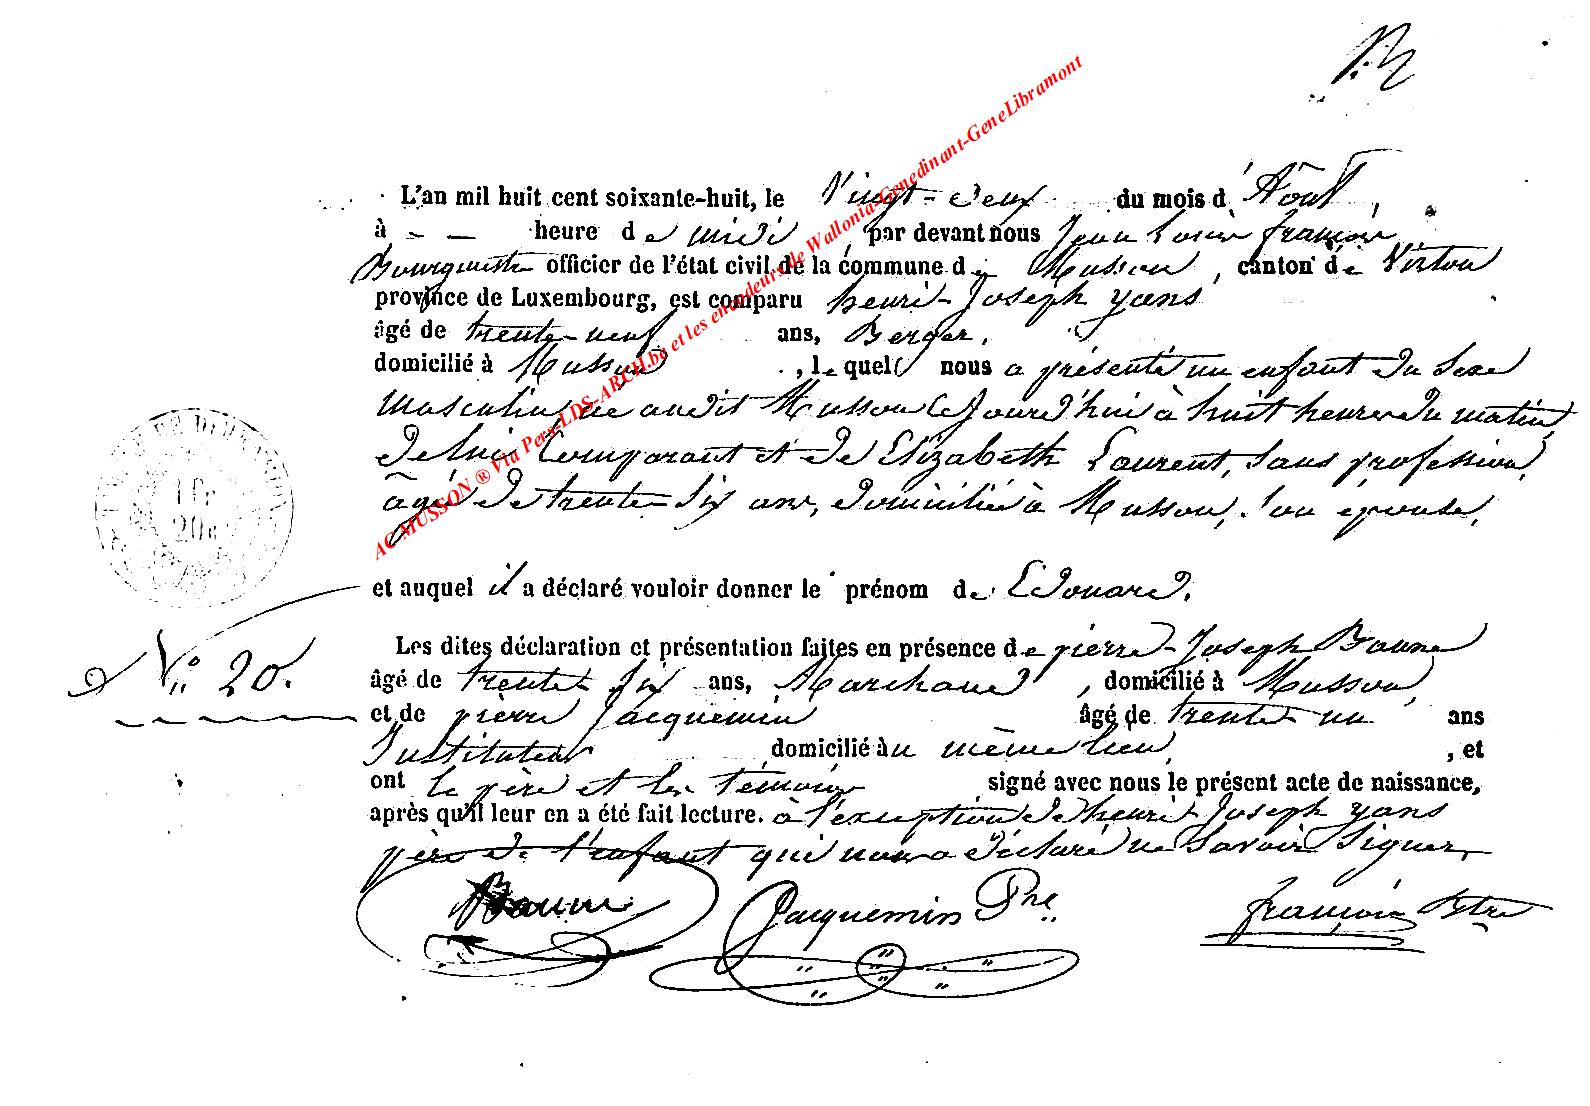 L'an mil huit cent soixante-huit, le Vingt-deux du mois d'Août,
à - - heure de midi, par devant nous Jean Louis françois
Bourgmestre officier de l'état civil de la commune de Musson, canton de Virton
province de Luxembourg, est comparu henri-Joseph yans
âgé de trente-neuf ans, Berger,
domicilié à Musson, lequel nous a présenté un enfant du Sexe
masculin, né audit Musson ce Jourd'hui à huit heures du matin,
de lui Comparant et de Elizabeth Laurent, Sans profession,
âgée de trente-Six ans, domiciliée à Musson, Son épouse,
et auquel il a déclaré vouloir donner le prénom de Edouard.
Les dites déclaration et présentation faites en présence de pierre-Joseph Baune
N° 20.
âgé de trente-Six ans, Marchand, domicilié à Musson,
et de pierre Jacquemin âgé de trente-un ans
Instituteur domicilié au même lieu, et
ont le père et les témoins signé avec nous le présent acte de naissance,
après qu'il leur en a été fait lecture. à l'exception de henri-Joseph yans
père de l'enfant qui nous a déclaré ne Savoir Signer,
Baune Jacquemin Pre françois Btre
AC MUSSON ® Via Pers-LDS-ARCH.be et les encodeurs de Wallonia-Genedinant-GeneLibramont
1 fr
20c